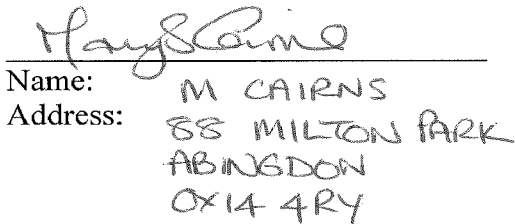 Mary S Cairns
Name: M CAIRNS
Address: 88 MILTON PARK
ABINGDON
OX14 4RY